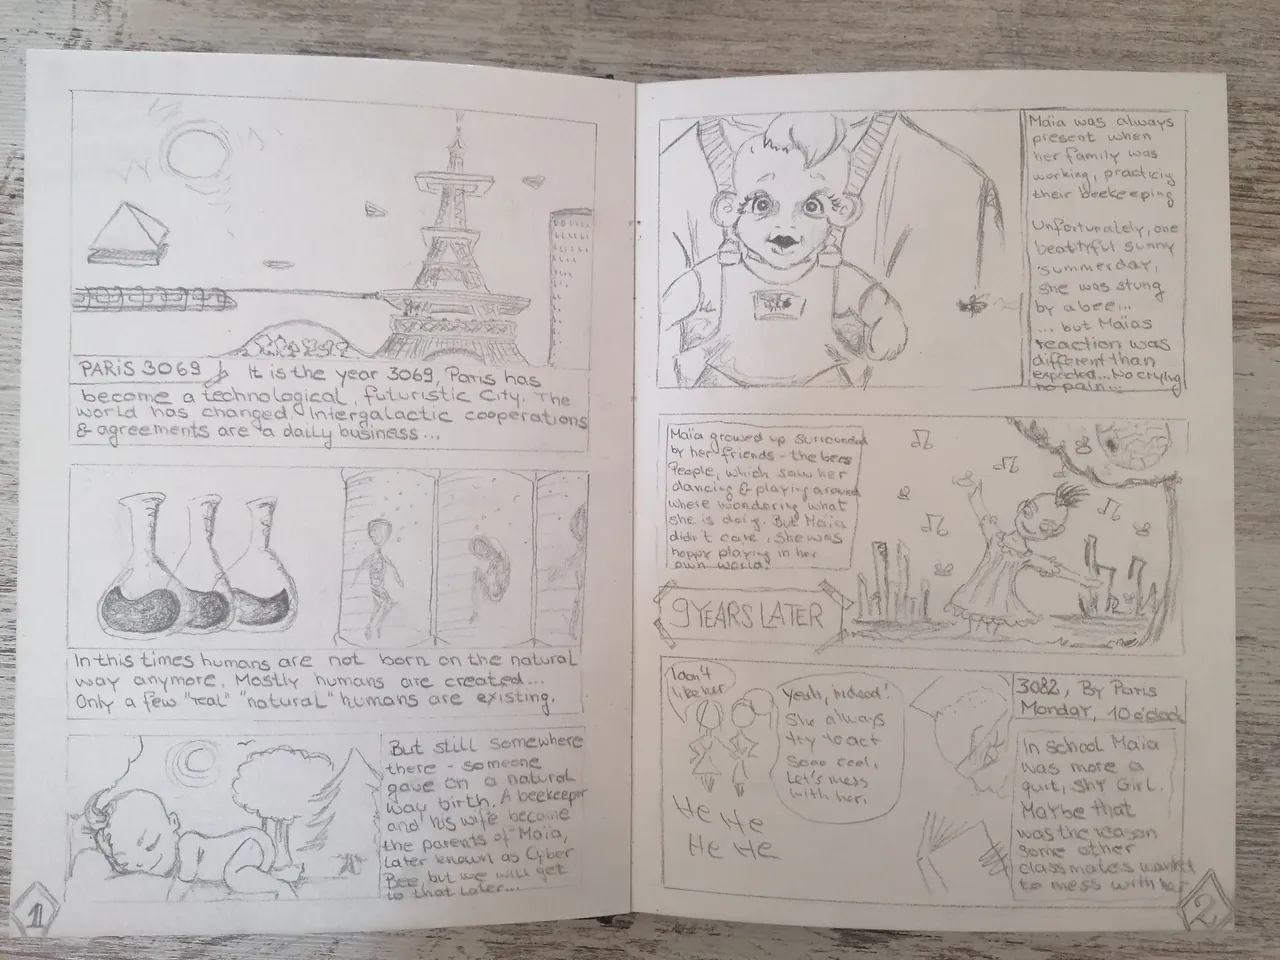 PARIS 3069
It is the year 3069, Paris has
become a technological, futuristic City. The
world has changed. Intergalactic cooperations
& agreements are a daily business...
In this times humans are not born on the natural
way anymore. Mostly humans are created...
Only a few "real" "natural" humans are existing.
But still somewhere
there - someone
gave on a natural
way birth. A beekeeper
and his wife become
the parents of Maïa,
later known as Cyber
Bee, but we will get
to that later...
1
Maïa was always
present when
her family was
working, practicing
their beekeeping
Unfortunately, one
beattyful sunny
summerday,
she was stung
by a bee...
... but Maïas
reaction was
different than
expected... No crying
no pain...
Maïa growed up surrounded
by her friends - the bees
People, which saw her
dancing & playing around
where wondering what
she is doig. But Maïa
didn't care, she was
happy playing in her
own world!
9 YEARS LATER
I don't
like her
Yeah, indeed!
She always
try to act
Sooo cool.
Let's mess
with her.
He He
He He
3082, By Paris
Monday, 10 o'clock
In school Maïa
was more a
quit, shy Girl.
Maybe that
was the reason
some other
classmates wanted
to mess with her
2